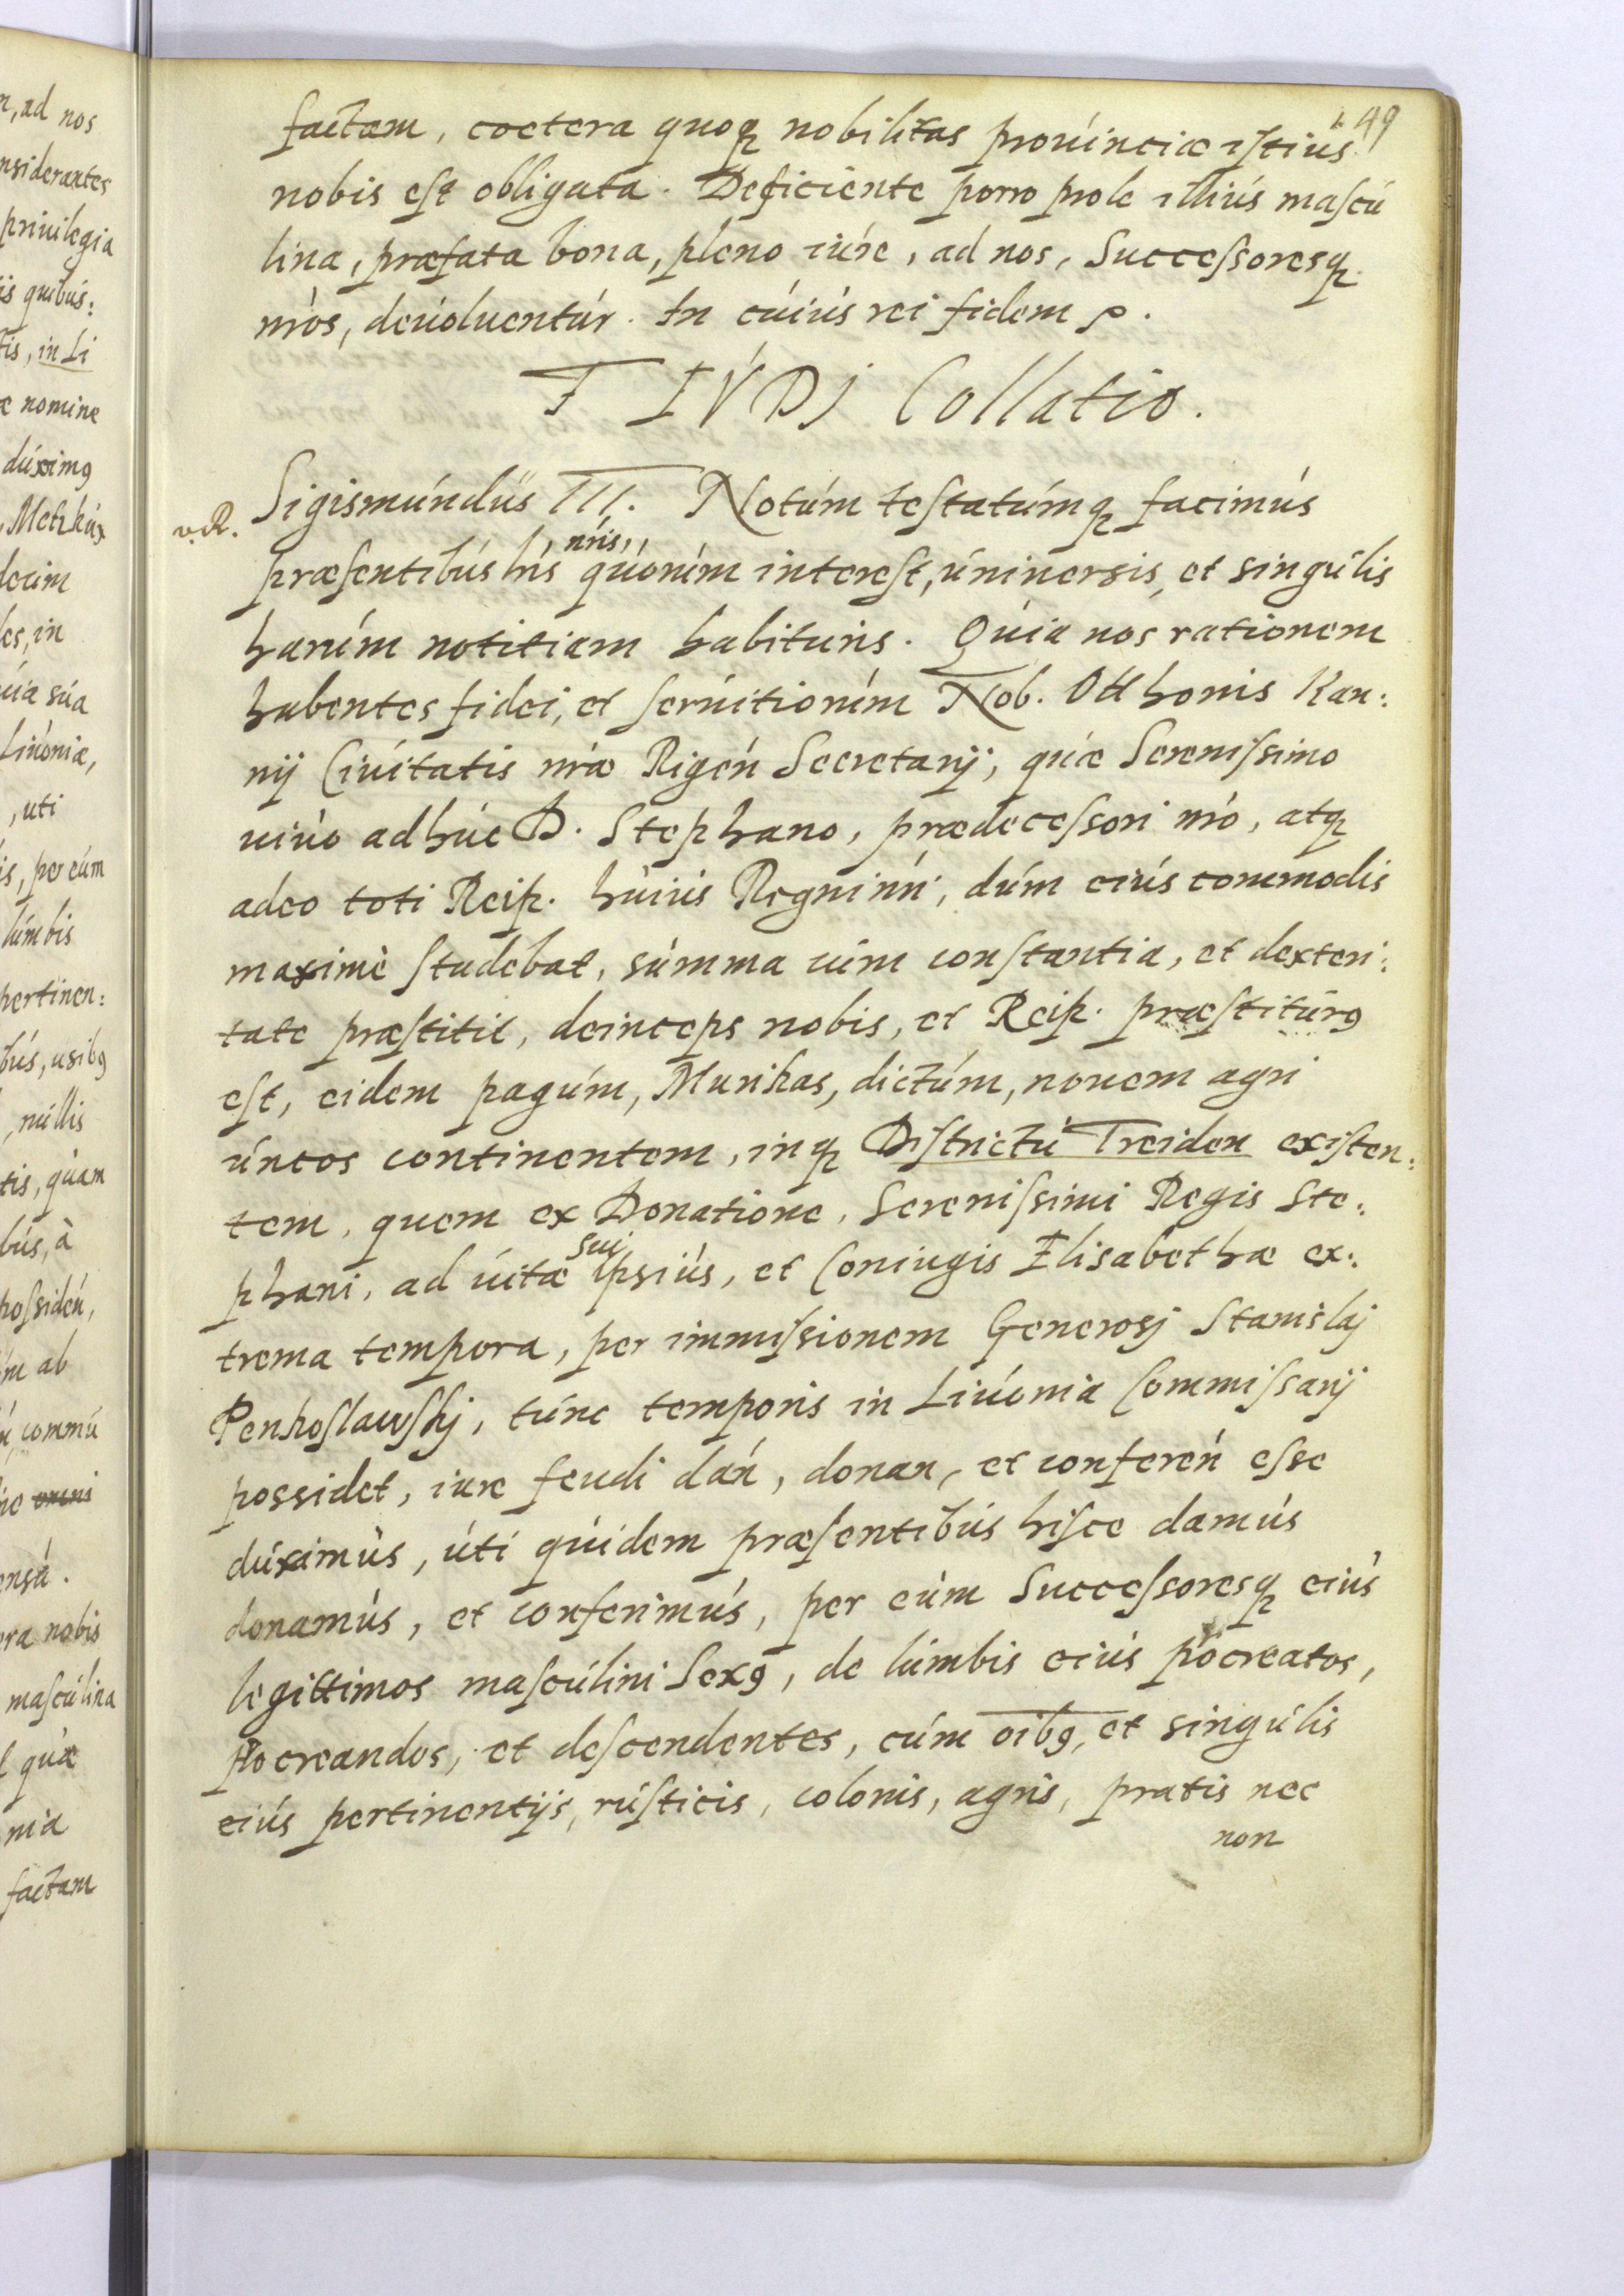 n, ad nos
nsiderantes
priuilegia
is quibús:
tis, in Li
e nomine
dúximꝰ
Metzkúx
decim
les, in
uia súa
Liúoniæ,
, uti
is, per eúm
lúmbis
pertinen:
bús, usibꝰ
, núllis
tis, quàm
bús, à
possideń,
m ab
commú
omni
ensú.
ra nobis
masculina
l quæ
nia
factam
49
factam, coetera quoqꝫ nobilitas prouinciæ istiús
nobis est obligata. Deficiente porro prole illiús mascú
lina, præfata bona, pleno iúre, ad nos, Successoresqꝫ
nr̃os, deúoluentúr. In cúiús rei fidem ꝭ.
F EVDJ Collatio.
v.R.
Sigismúndús III. Notúm testatúmqꝫ facimús
præsentibús hìs nr̃is, qúorúm interest, úniuersis, et singúlis
harúm notitiam habitúris. Qúia nos rationem
habentes fidei, et seruitiorúm Nob. Otthonis Kan:
nij Ciúitatis nr̃æ Rigeń Secretarij, quæ Serenissimo
uiúo adhúc D. Stephano, prædecessori nr̃o, atqꝫ
adeo toti Reip. húiús Regni nr̃i, dúm eiús commodis
maximè studebat, súmma cúm constantia, et dexteri:
tate præstitit, deinceps nobis, et Reip. præstitúrꝰ
est, eidem pagúm, Murikas, dictúm, nouem agri
úncos continentem, inqꝫ Districtú Treiden existen:
tem, quem ex Donatione, Serenissimi Regis Ste:
phani, ad úitæ sui ipsiús, et Coniugis Elisabethæ ex:
trema tempora, per immissionem Generosj Stanislaj
Penkoslawskj, túnc temporis in Liúonia Commissarij
possidet, iure feudi dań, donan, et confereń esse
dúximús, úti qúidem præsentibús hisce damús
donamús, et conferimús, per eúm Successoresqꝫ eiús
legittimos mascúlini Sexꝰ, de lúmbis eiús ꝓcreatos,
ꝓcreandos, et descendentes, cúm oibꝰ, et singúlis
eiús pertinentijs, rústicis, colonis, agris, pratis nec
non